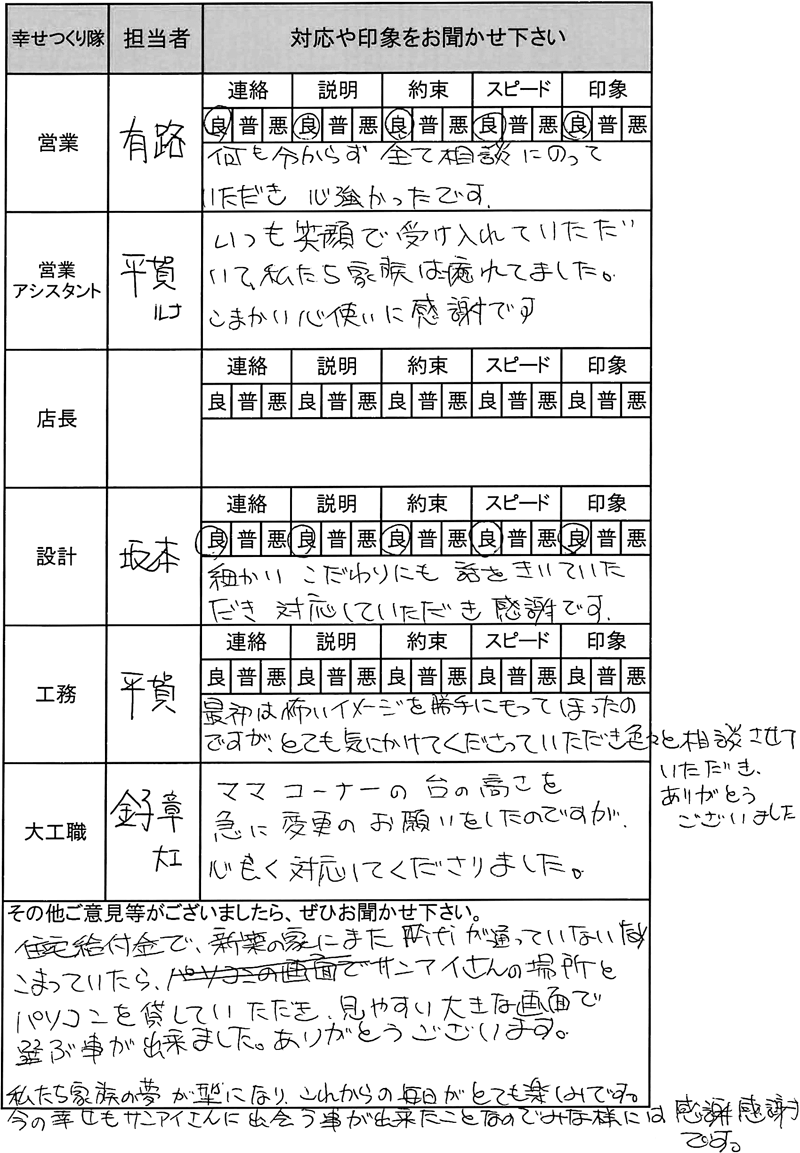 幸せつくり隊 担当者 対応や印象をお聞かせ下さい
営業 有路
連絡 説明 約束 スピード 印象
良 普 悪 良 普 悪 良 普 悪 良 普 悪 良 普 悪
何も分からず 全て相談にのって
いただき 心強かったです.
営業
アシスタント
平賀
いつも笑顔で受け入れていただ
いて、私たち家族は癒れてました。
こまかい心使いに感謝です
店長
連絡 説明 約束 スピード 印象
良 普 悪 良 普 悪 良 普 悪 良 普 悪 良 普 悪
設計 坂本
連絡 説明 約束 スピード 印象
良 普 悪 良 普 悪 良 普 悪 良 普 悪 良 普 悪
細かい こだわりにも 話をきいていた
だき 対応していただき 感謝です.
工務 平賀
連絡 説明 約束 スピード 印象
良 普 悪 良 普 悪 良 普 悪 良 普 悪 良 普 悪
最初は怖いイメージを勝手にもってしまったの
ですが、とても気にかけてくださっていただき色々と相談させて
いただき、
ありがとう
ございました
大工職 大工
ママコーナーの台の高さを
急に変更のお願いをしたのですが、
心良く対応してくださりました。
その他ご意見等がございましたら、ぜひお聞かせ下さい。
住宅給付金で、新築の家にまた が通っていない
こまっていたら、パソコンの画面でサンアイさんの場所と
パソコンを貸していただき、見やすい大きな画面で
選ぶ事が出来ました。ありがとうございます。
私たち家族の夢が型になり、これからの毎日がとても楽しみです。
今の幸せもサンアイさんに出会う事が出来たことなのでみな様には感謝感謝
です。